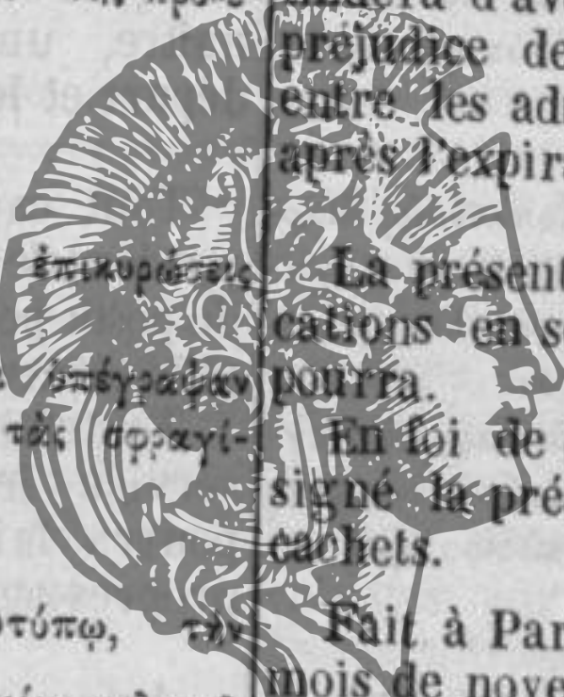 ἐπικυρώσεις
ὑπέγραψαν
τὰς σφραγί-
τὴν
préjudice de
entre les
après l'expira
La présent
cations en
pourra.
En foi de
signé la pré
cachets.
Fait à Par
mois de nove